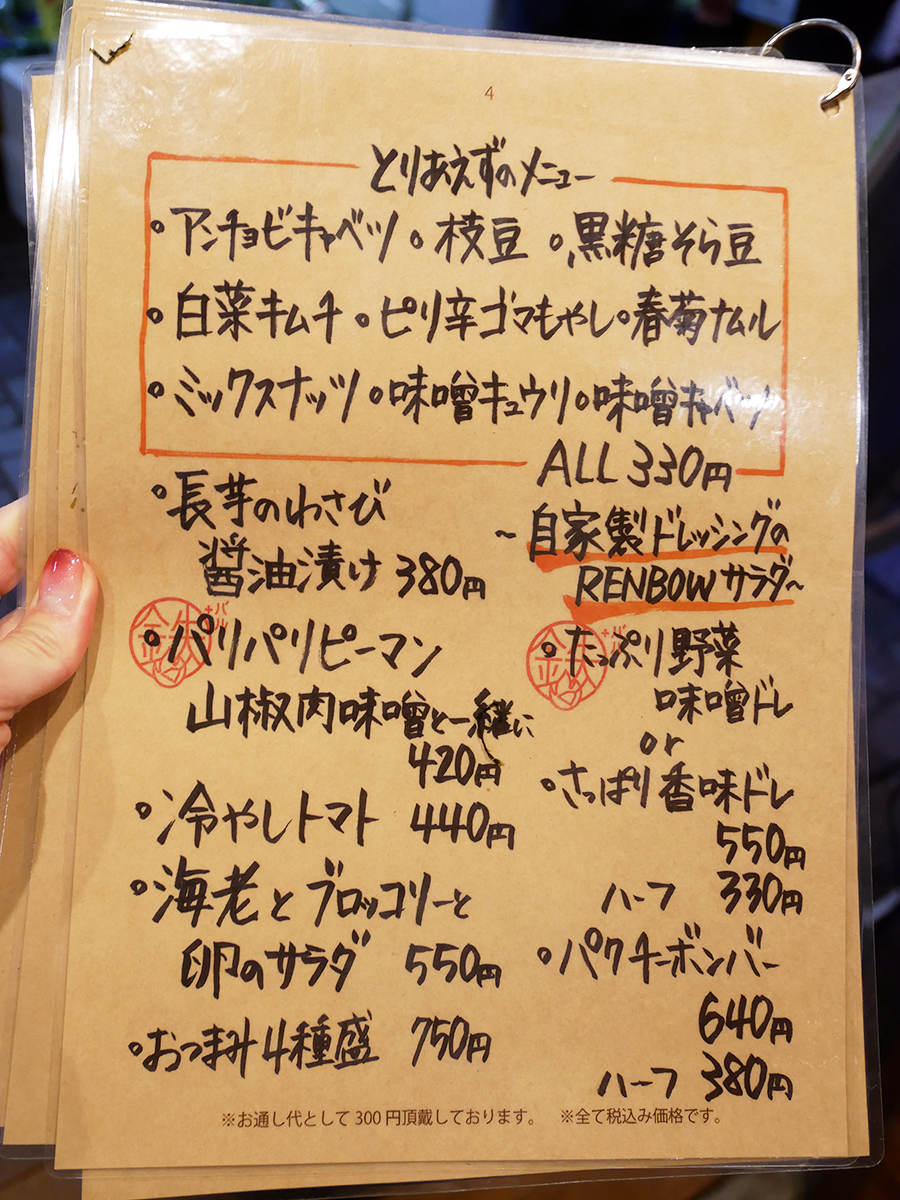 4
とりあえずのメニュー
・アンチョビキャベツ ・枝豆 ・黒糖そら豆
・白菜キムチ ・ピリ辛ゴマもやし ・春菊ナムル
・ミックスナッツ ・味噌キュウリ ・味噌キャベツ
ALL 330円
・長芋のわさび
醤油漬け 380円
・パリパリピーマン
山椒肉味噌と一緒に
420円
・冷やしトマト 440円
・海老とブロッコリーと
卵のサラダ 550円
・おつまみ4種盛 750円
～自家製ドレッシングの
RENBOWサラダ～
・たっぷり野菜
味噌ドレ
or
・さっぱり香味ドレ
550円
ハーフ 330円
・パクチーボンバー
640円
ハーフ 380円
※お通し代として300円頂戴しております。 ※全て税込み価格です。